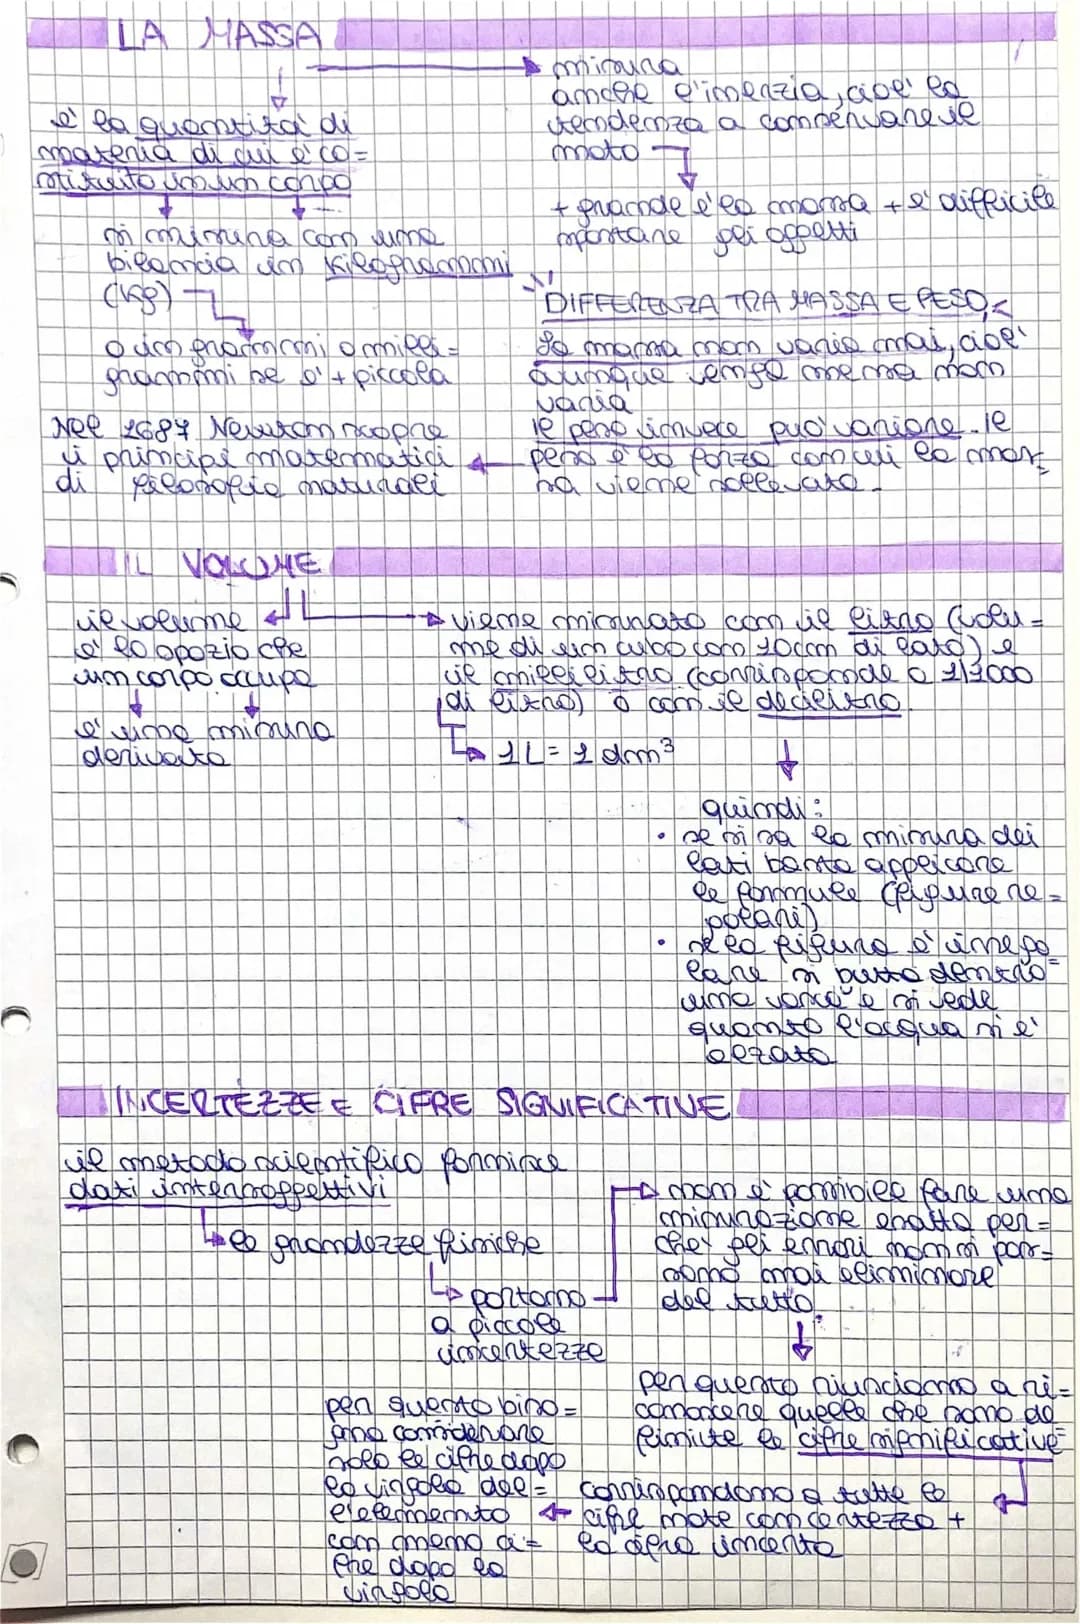 LA MASSA
è la quantità di
materia di cui è co=
stituito in un corpo
si misura con una
bilancia in Kilogrammi
(Kg)
o in grammi o milli=
grammi se è + piccola
misura
anche l'inerzia, cioè la
tendenza a conservare il
moto
+ grande è la massa + è difficile
spostare gli oggetti
DIFFERENZA TRA MASSA E PESO
La massa non varia mai, cioè
ovunque venga messa non
varia
il peso invece può variare. Il
peso è la forza con cui la mas=
sa viene sollevata.
Nel 1687 Newton scopre
i principi matematici
di filosofia naturali
IL VOLUME
il volume
è lo spazio che
un corpo occupa
è una misura
derivata
viene misurato con il litro (volu=
me di un cubo con 10cm di lato) e
il millilitro (corrisponde a 1/1000
di litro) o con il decilitro.
1L = 1 dm³
quindi:
• se si sa la misura dei
lati basta applicare
le formule (figure re=
golari)
• se la figura è irrego=
lare si butta dentro
una vasca e si vede
quanto l'acqua si è
alzata
INCERTEZZE E CIFRE SIGNIFICATIVE
il metodo scientifico fornisce
dati intersoggettivi
le grandezze fisiche
portano
a piccole
incertezze
non è possibile fare una
misurazione esatta per=
chè gli errori non si pos=
sono mai eliminare
del tutto.
per questo riusciamo a ri=
conoscere quelle che sono de
finite le cifre significative
corrispondono a tutte le
cifre note con certezza +
la cifra incerta
per questo biso=
gna considerare
solo le cifre dopo
la virgola del=
l'elemento
con meno ci=
fre dopo la
virgola